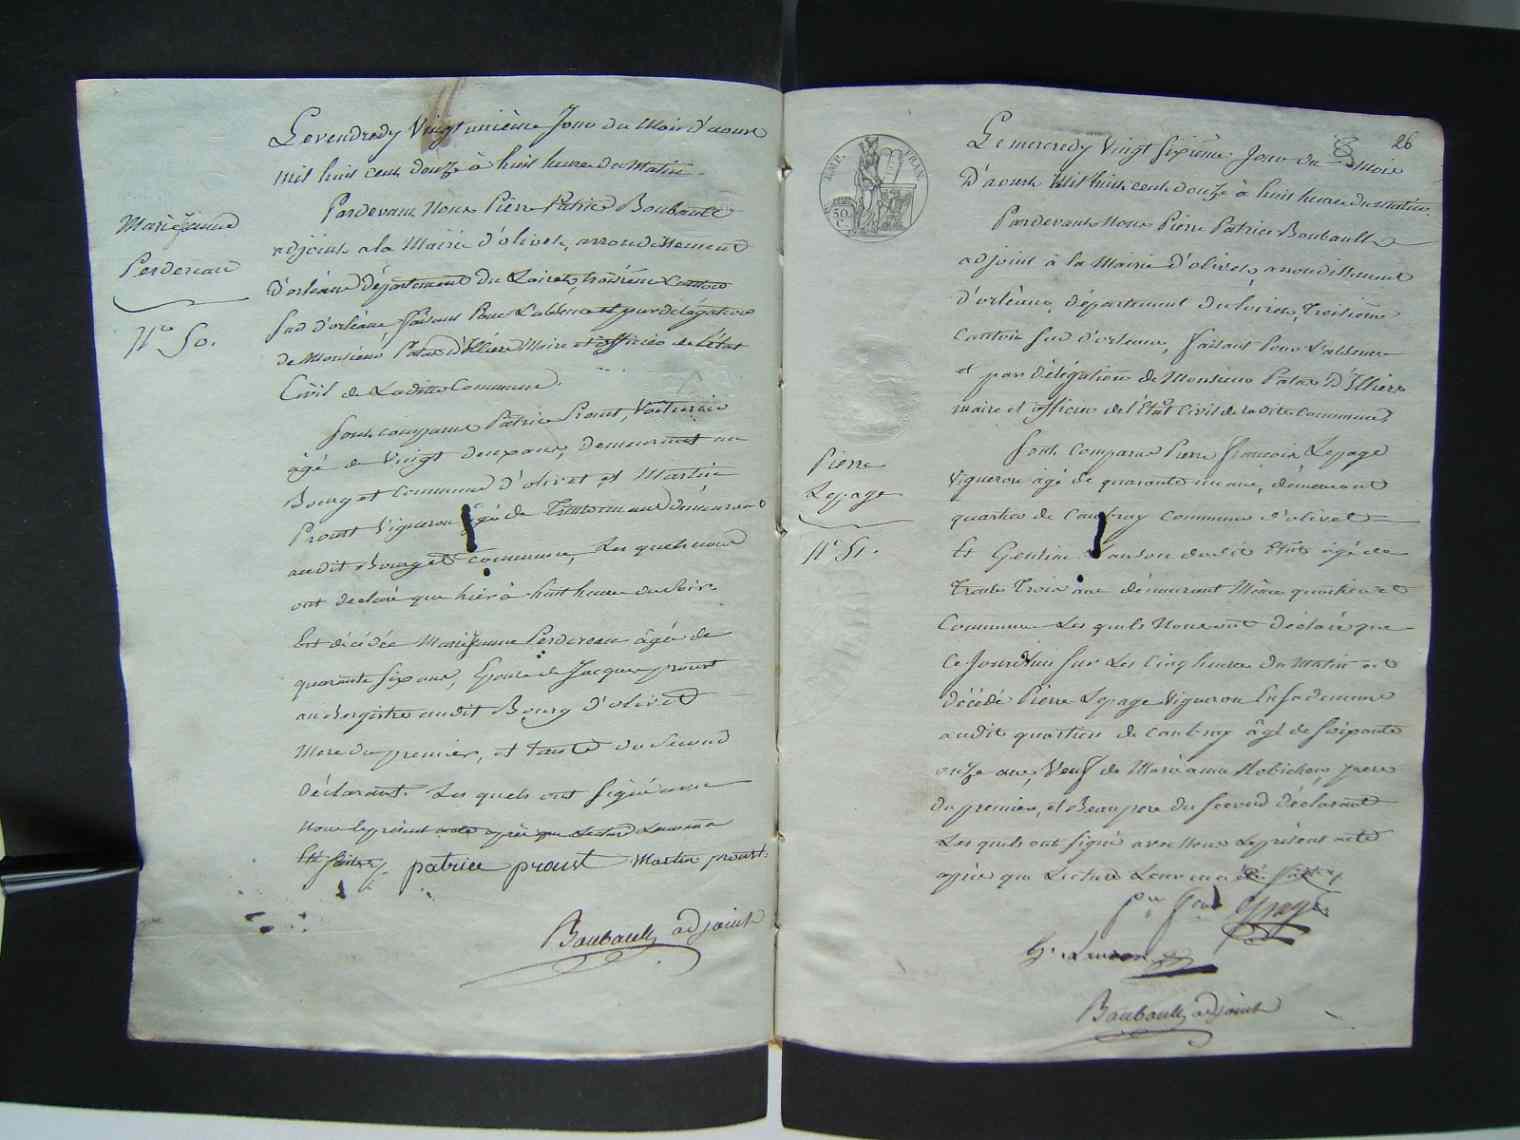 Le vendredy Vingt unième Jour du Mois d'aoust
Mil huit cent douze à huit heure du Matin.
Pardevant Nous Pierre Patrice Boubault
adjoint a la Mairie d'olivet, arrondissement
d'orléans département du Loiret, troisième Canton
sud d'orléans, faisant Pour L'absence et par délégation
de Monsieur Patas d'Illiers Maire et officier de l'état
Civil de Laditte Commune.
Marie Jeanne
Perdereau
N° 50.
Sont comparus Patrice Proust, Voiturier
âgé de Vingt deux ans, demeurant au
Bourg et Commune d'olivet, et Martin
Proust Vigneron âgé de Trente un ans demeurant
audit Bourg et commune, Les quels nous
ont declaré que hier à huit heure du Soir
Est décédée Marie Jeanne Perdereau âgée de
quarante six ans, Epouse de Jacques proust
audit Bourg d'olivet
Mere du premier, et tante du Second
déclarant. Les quels ont signé avec
nous le présent acte après que Lecture Leur en a
Eté faite patrice proust Martin proust
Boubault adjoint
26
EMP. FRAN.
50
Le mercredy Vingt sixième Jour du Mois
D'aoust Mil huit cent douze à huit heure du Matin.
Pardevant Nous Pierre Patrice Boubault
adjoint à la Mairie d'olivet, arrondissement
d'orléans, département du Loiret, Troisième
Canton sud d'orléans, faisant Pour L'absence
et par délégation de Monsieur Patas D'Illiers
maire et officier de l'Etat Civil de ladite Commune,
Pierre
Lepage
N° 51.
Sont Comparus Pierre françois Lepage
Vigneron âgé de quarante un ans, demeurant
quartier de Caubray Commune d'olivet
Et Gentien Lanson dudit Etat âgé de
Trente Trois ans demeurant Même quartier et
Commune Les quels Nous ont déclaré que
Ce Jourd'hui sur Les Cinq heure du Matin est
décédé Pierre Lepage Vigneron En sa demeure
audit quartier de Caubray âgé de Soixante
onze ans, Veuf de Marie anne Robichon, pere
du premier, et Beaupere du second déclarant
Les quels ont signé avec Nous Le présent acte
après que Lecture Leur en a été faite
Lepage
Boubault adjoint